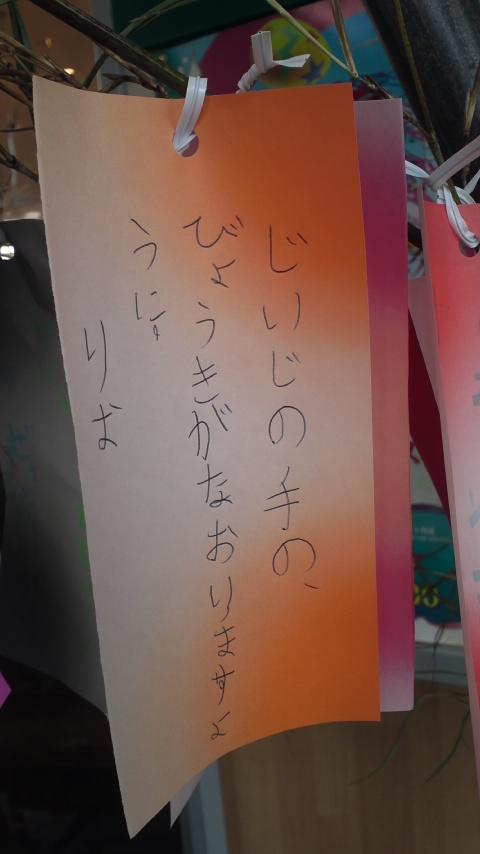 じいじの手の、
びょうきがなおりますよ
うに。
りな